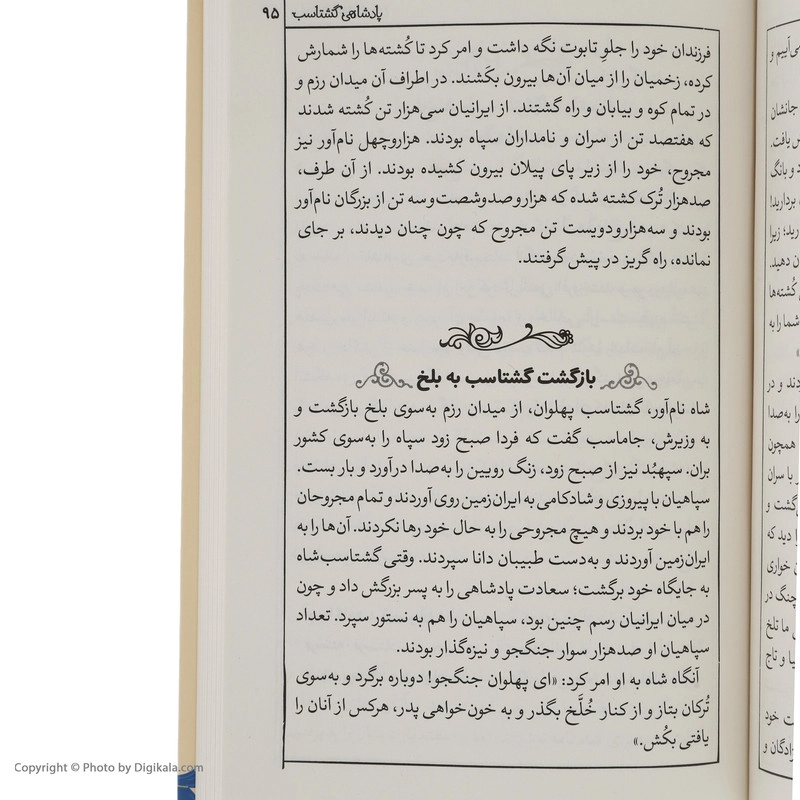 پادشاهی گشتاسب ۹۵
فرزندان خود را جلوِ تابوت نگه داشت و امر کرد تا کُشته‌ها را شمارش
کرده، زخمیان را از میان آن‌ها بیرون بکَشند. در اطراف آن میدان رزم و
در تمام کوه و بیابان و راه گشتند. از ایرانیان سی‌هزار تن کُشته شدند
که هفتصد تن از سران و نامداران سپاه بودند. هزاروچهل نام‌آور نیز
مجروح، خود را از زیر پای پیلان بیرون کشیده بودند. از آن طرف،
صدهزار تُرک کشته شده که هزاروصدوشصت‌وسه تن از بزرگان نام‌آور
بودند و سه‌هزارودویست تن مجروح که چون چنان دیدند، بر جای
نمانده، راه گریز در پیش گرفتند.
بازگشت گشتاسب به بلخ
شاه نام‌آور، گشتاسب پهلوان، از میدان رزم به‌سوی بلخ بازگشت و
به وزیرش، جاماسب گفت که فردا صبح زود سپاه را به‌سوی کشور
بران. سپهبُد نیز از صبح زود، زنگ رویین را به‌صدا درآورد و بار بست.
سپاهیان با پیروزی و شادکامی به ایران‌زمین روی آوردند و تمام مجروحان
را هم با خود بردند و هیچ مجروحی را به حال خود رها نکردند. آن‌ها را به
ایران‌زمین آوردند و به‌دست طبیبان دانا سپردند. وقتی گشتاسب‌شاه
به جایگاه خود برگشت؛ سعادت پادشاهی را به پسر بزرگش داد و چون
در میان ایرانیان رسم چنین بود، سپاهیان را هم به نستور سپرد. تعداد
سپاهیان او صدهزار سوار جنگجو و نیزه‌گذار بودند.
آنگاه شاه به او امر کرد: «ای پهلوان جنگجو! دوباره برگرد و به‌سوی
تُرکان بتاز و از کنار خُلَّخ بگذر و به خون‌خواهی پدر، هرکس از آنان را
یافتی بکُش.»
می‌آییم و
جانشان
یافت.
و بانگ
بردارید!
زیرا
دهید.
کُشته‌ها
شما را به
دند و در
را به‌صدا
همچون
با سران
گشت و
دید که
خواری
چنگ در
ما تلخ
و تاج
خود
زادگان و
Copyright © Photo by Digikala.com